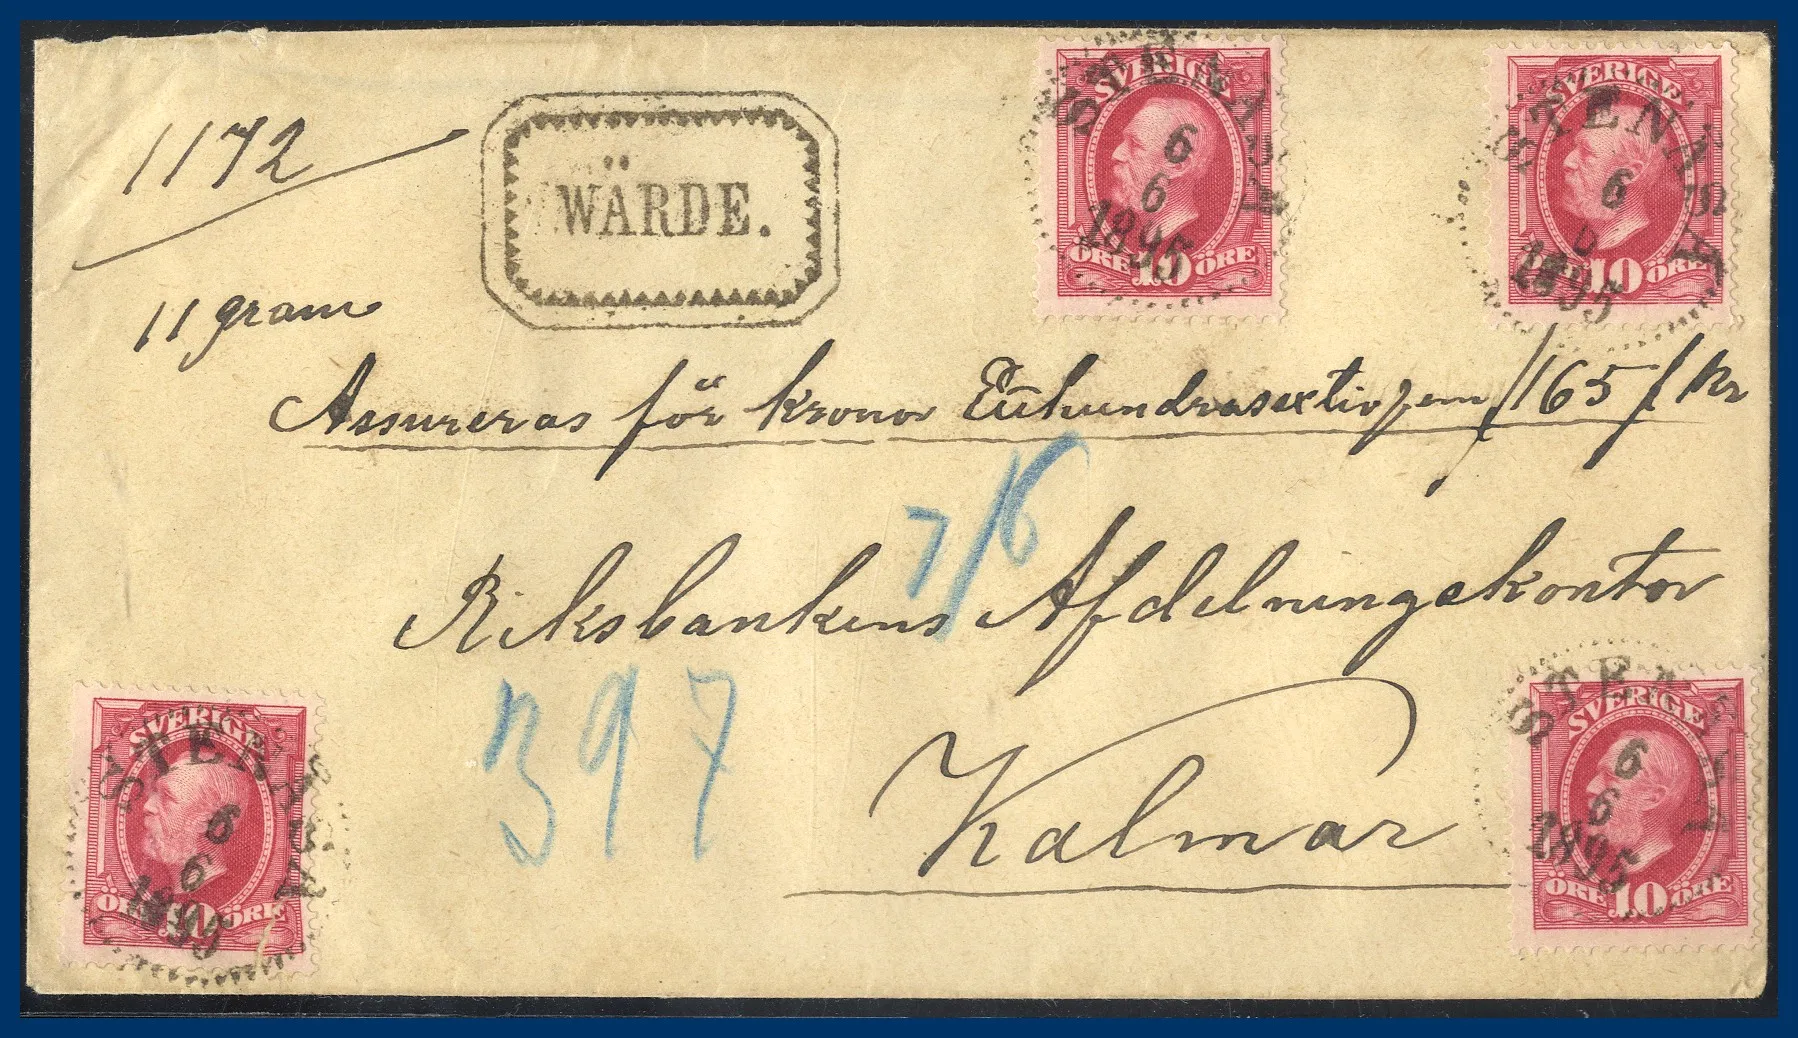 1172
WÄRDE.
11 gram
SVERIGE
10
ÖRE ÖRE
STENÅSA
6
6
1895
SVERIGE
10
ÖRE
STENÅSA
6
1895
Assureras för kronor Etthundrasextiofem /165/ Kr
7/6
Riksbankens Afdelningskontor
397
Kalmar
SVERIGE
ÖRE 10 ÖRE
STENÅSA
6
6
1895
SVERIGE
ÖRE 10 ÖRE
STENÅSA
6
6
1895